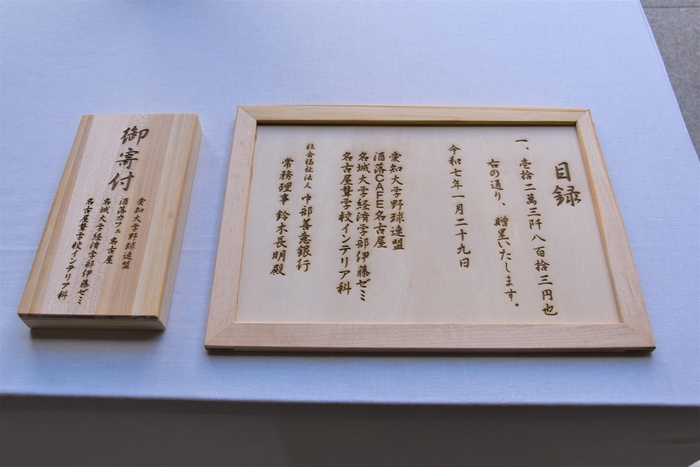 目録
一、壱拾二萬三阡八百拾三円也
右の通り、贈呈いたします。
令和七年一月二十九日
愛知大学野球連盟
洒落CAFE名古屋
名城大学経済学部伊藤ゼミ
名古屋聾学校インテリア科
社会福祉法人 中部善意銀行
常務理事 鈴木長明殿
御寄付
愛知大学野球連盟
洒落カフェ名古屋
名城大学経済学部伊藤ゼミ
名古屋聾学校インテリア科